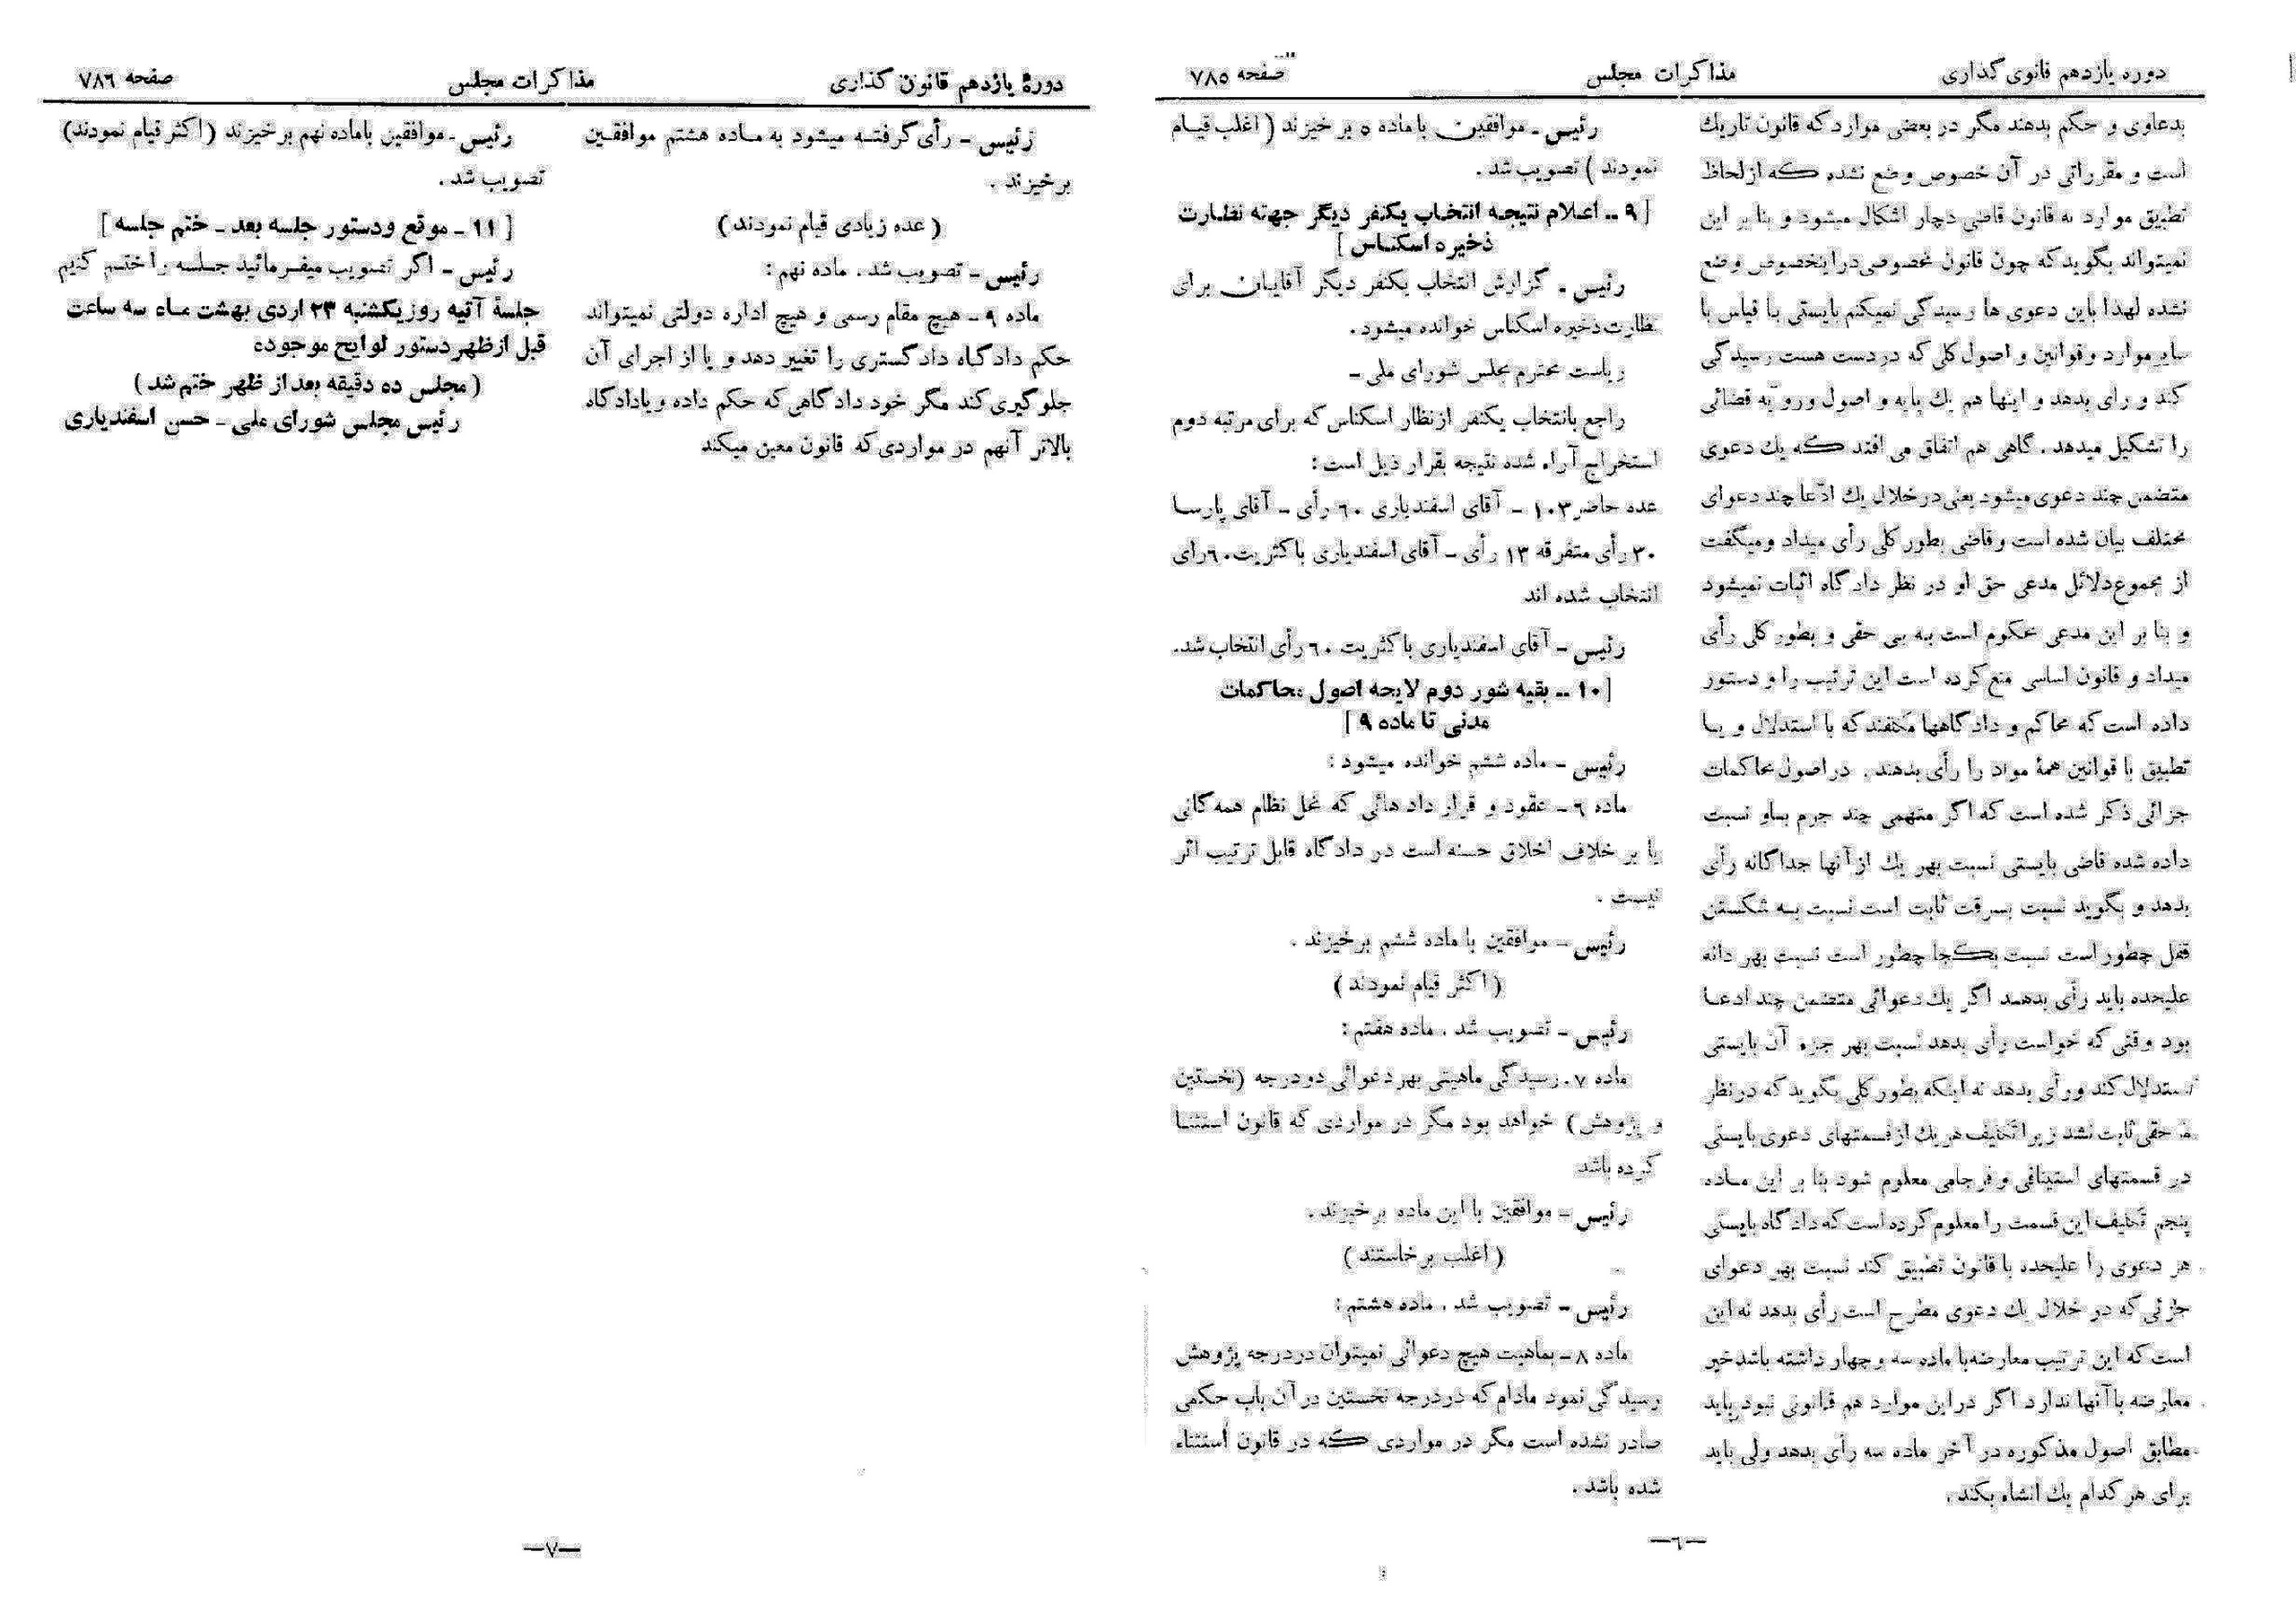 دوره یازدهم قانوی گذاری
مذاکرات مجلس
صفحه ۷۸۵
بدعاوی و حکم بدهند مگر در بعضی مواردکه قانون تاریك
است و مقرراتی در آن خصوص وضع نشده که ازلحاظ
تطبیق موارد به قانون قاضی دچار اشکال میشود و بنا بر این
نمیتواند بگویدکه چون قانون مخصوصی دراینخصوص وضع
نشده لهذا باین دعوی ها رسیدگی نمیکنم بایستی با قیاس با
سایر موارد وقوانین و اصول کلی که دردست هست رسیدگی
کند و رای بدهد و اینها هم یك پایه و اصول ورویّه قضائی
را تشکیل میدهد . گاهی هم اتفاق می افتد که یك دعوی
متضمن چند دعوی میشود یعنی درخلال یك ادّعا چند دعوای
مختلف بیان شده است و قاضی بطور کلی رأی میداد ومیگفت
از مجموع دلائل مدعی حق او در نظر دادگاه اثبات نمیشود
و بنا بر این مدعی محکوم است به بی حقی و بطور کلی رأی
میداد و قانون اساسی منع کرده است این ترتیب را و دستور
داده است که محاکم و دادگاهها مکلفندکه با استدلال و با
تطبیق با قوانین همهٔ مواد را رأی بدهند . در اصول محاکمات
جزائی ذکر شده است که اگر متهمی چند جرم باو نسبت
داده شده قاضی بایستی نسبت بهر یك از آنها جداگانه رأی
بدهد و بگوید نسبت بسرقت ثابت است نسبت به شکستن
قفل چطور است نسبت بکجا چطور است نسبت بهر دانه
علیحده باید رأی بدهد اگر یك دعوائی متضمن چند ادعا
بود وقتی که خواست رأی بدهد نسبت بهر جزء آن بایستی
استدلال کند ورأی بدهد نه اینکه بطور کلی بگوید که درنظر
حقی ثابت نشد زیرا تکلیف هریك از قسمتهای دعوی بایستی
در قسمتهای استینافی و فرجامی معلوم شود بنا بر این ماده
پنجم تکلیف این قسمت را معلوم کرده است که دادگاه بایستی
هر دعوی را علیحده با قانون تطبیق کند نسبت بهر دعوای
جزئی که در خلال یك دعوی مطرح است رأی بدهد نه این
است که این ترتیب معارضه با ماده سه و چهار داشته باشد خیر
معارضه باآنها ندارد اگر دراین موارد هم قانونی نبود باید
مطابق اصول مذکوره در آخر ماده سه رأی بدهد ولی باید
برای هرکدام یك انشاء بکند .
رئیس ـ موافقین باماده ۵ برخیزند ( اغلب قیام
نمودند ) تصویب شد .
[ ۹ ـ اعلام نتیجه انتخاب یکنفر دیگر جهته نظارت
ذخیره اسکناس ]
رئیس ـ گزارش انتخاب یکنفر دیگر آقایان برای
نظارت ذخیره اسکناس خوانده میشود.
ریاست محترم مجلس شورای ملی ـ
راجع بانتخاب یکنفر ازنظار اسکناس که برای مرتبه دوم
استخراج آراء شده نتیجه بقرار ذیل است :
عده حاضر ۱۰۳ ـ آقای اسفندیاری ۶۰ رأی ـ آقای پارسا
۳۰ رأی متفرقه ۱۳ رأی ـ آقای اسفندیاری باکثریت ۶۰ رای
انتخاب شده اند
رئیس ـ آقای اسفندیاری باکثریت ۶۰ رأی انتخاب شد.
[ ۱۰ ـ بقیه شور دوم لایحه اصول محاکمات
مدنی تا ماده ۹ ]
رئیس ـ ماده ششم خوانده میشود :
ماده ٦ ـ عقود و قرار داد هائی که مخل نظام همه گانی
یا بر خلاف اخلاق حسنه است در دادگاه قابل ترتیب اثر
نیست .
رئیس ـ موافقین با ماده ششم برخیزند .
( اکثر قیام نمودند )
رئیس ـ تصویب شد . ماده هفتم :
ماده ۷ ـ رسیدگی ماهیتی بهر دعوائی دو درجه (نخستین
و پژوهش ) خواهد بود مگر در مواردی که قانون استثنا
کرده باشد
رئیس ـ موافقین با این ماده برخیزند .
( اغلب برخاستند )
رئیس ـ تصویب شد . ماده هشتم :
ماده ۸ ـ بماهیت هیچ دعوائی نمیتوان دردرجه پژوهش
رسیدگی نمود مادام که دردرجه نخستین در آن باب حکمی
صادر نشده است مگر در مواردی که در قانون استثناء
شده باشد .
—٦—
دورهٔ یازدهم قانون گذاری
مذاکرات مجلس
صفحه ۷۸٦
رئیس ـ رأی گرفته میشود به ماده هشتم موافقین
برخیزند .
( عده زیادی قیام نمودند )
رئیس ـ تصویب شد . ماده نهم :
ماده ۹ ـ هیچ مقام رسمی و هیچ اداره دولتی نمیتواند
حکم دادگاه دادگستری را تغییر دهد و یا از اجرای آن
جلوگیری کند مگر خود دادگاهی که حکم داده و یادادگاه
بالاتر آنهم در مواردی که قانون معین میکند
رئیس ـ موافقین باماده نهم برخیزند (اکثر قیام نمودند)
تصویب شد .
[ ۱۱ ـ موقع ودستور جلسه بعد ـ ختم جلسه ]
رئیس ـ اگر تصویب میفرمائید جلسه را ختم کنیم
جلسهٔ آتیه روز یکشنبه ۲۳ اردی بهشت ماه سه ساعت
قبل ازظهر دستور لوایح موجوده
( مجلس ده دقیقه بعد از ظهر ختم شد )
رئیس مجلس شورای ملی ـ حسن اسفندیاری
—۷—